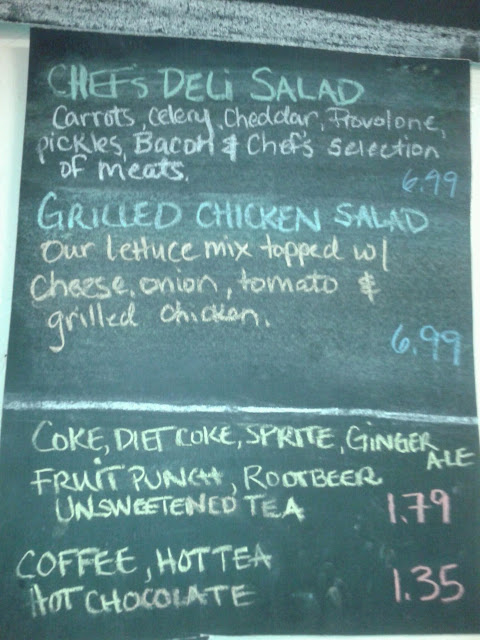 CHEF'S DELI SALAD
Carrots, Celery, Cheddar, Provolone,
pickles, Bacon & Chef's selection
of meats.
6.99
GRILLED CHICKEN SALAD
Our lettuce mix topped w/
Cheese, onion, tomato &
grilled Chicken.
6.99
COKE, DIET COKE, SPRITE, GINGER
ALE
FRUIT PUNCH, ROOTBEER
UNSWEETENED TEA
1.79
COFFEE, HOT TEA
HOT CHOCOLATE
1.35